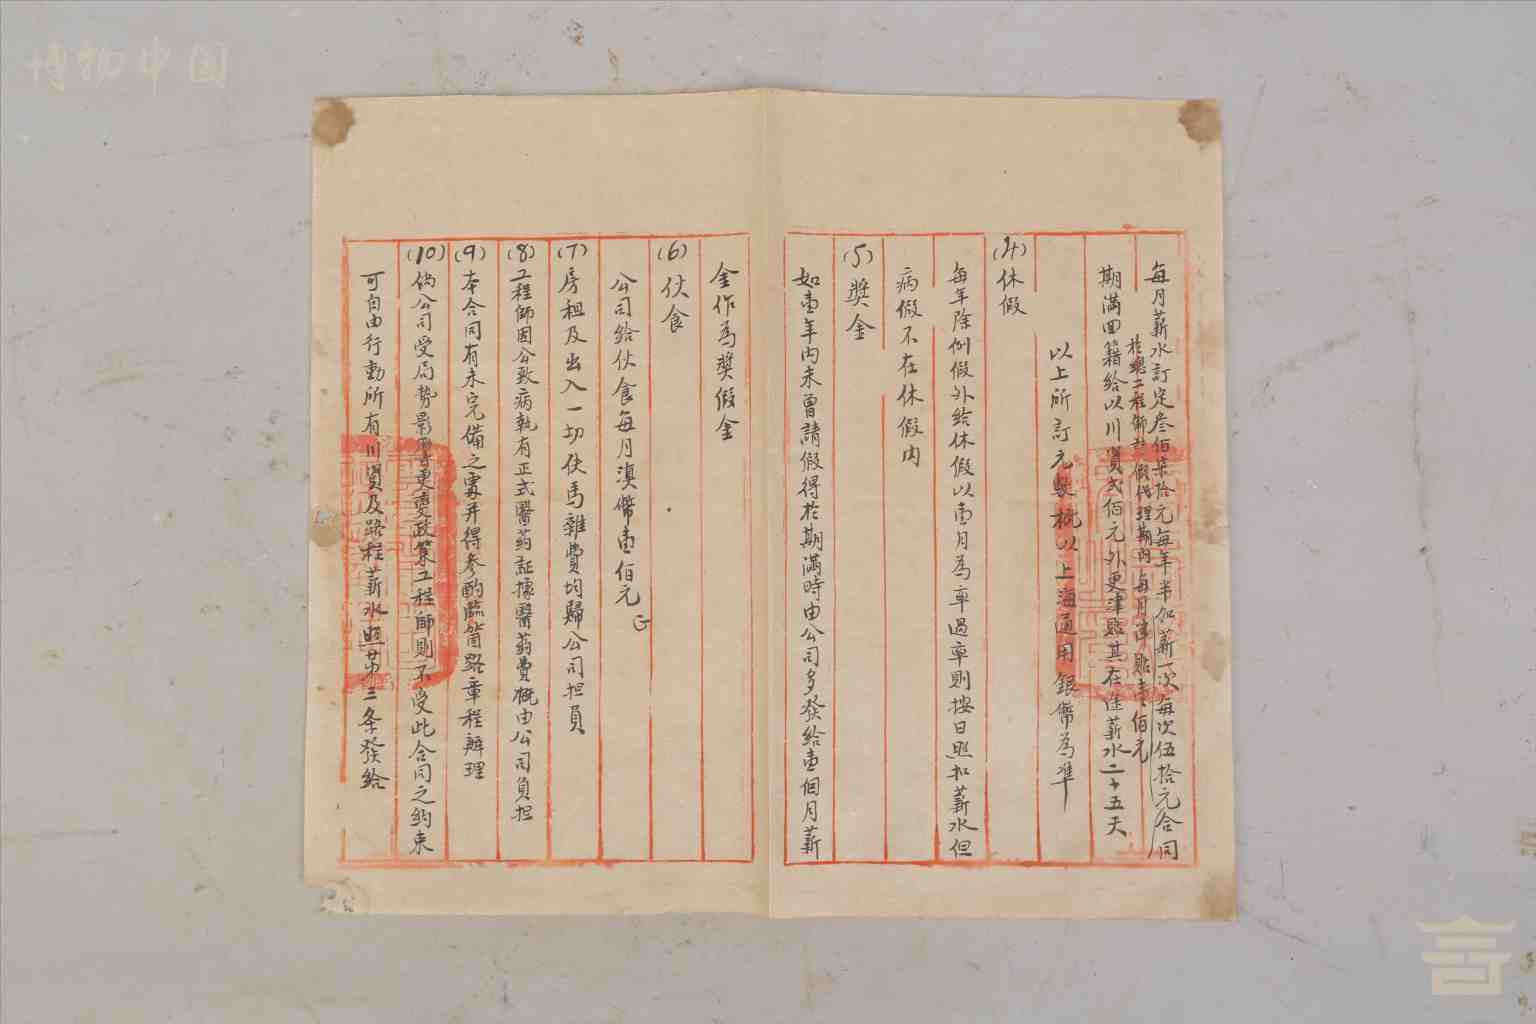 博物中国
每月薪水訂定叁佰柒拾元每年半加薪一次每次伍拾元合同
於總工程師請假代理期內每月津貼壹佰元
期滿回籍給以川資弍佰元外更津貼其在途薪水二十五天
以上所訂元數概以上海通用銀幣為準
(4)休假
每年除例假外給休假以壹月為率過率則按日照扣薪水但
病假不在休假內
(5)獎金
如壹年內未曾請假得於期滿時由公司多發給壹個月薪
金作為獎假金
(6)伙食
公司給伙食每月滇幣壹佰元
(7)房租及出入一切伕馬雜費均歸公司担負
(8)工程師因公致病執有正式醫药証據醫药費概由公司負担
(9)本合同有未完備之處并得參酌臨箇路章程辦理
(10)倘公司受局勢影響更變政策工程師則不受此合同之約束
可自由行動所有川資及路程薪水照廿第三条發給